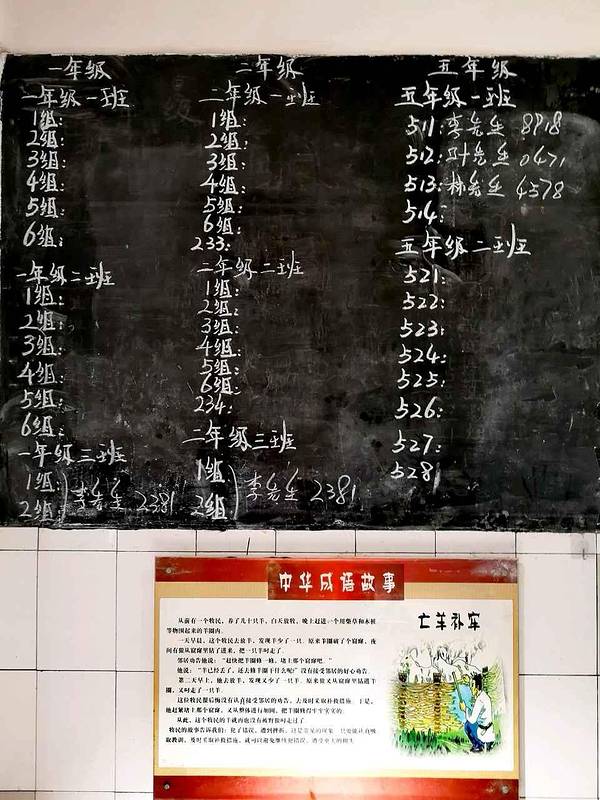 一年级
一年级一班
1组:
2组:
3组:
4组:
5组:
6组:
一年级二班
1组:
2组:
3组:
4组:
5组:
6组:
一年级三班
1组:
2组:
李先生 2381
二年级
二年级一班
1组:
2组:
3组:
4组:
5组:
6组:
233:
二年级二班
1组:
2组:
3组:
4组:
5组:
6组:
234:
二年级三班
1组
2组
李先生 2381
五年级
五年级一班
511:李先生 8918
512:叶先生 0471
513:林先生 4578
514:
五年级二班
521:
522:
523:
524:
525:
526:
527:
528:
中华成语故事
亡羊补牢
从前有一个牧民，养了几十只羊，白天放牧，晚上赶进一个用柴草和木桩
等物围起来的羊圈内。
一天早晨，这个牧民去放羊，发现羊少了一只。原来羊圈破了个窟窿，夜
间有狼从窟窿里钻了进来，把一只羊叼走了。
邻居劝告他说：“赶快把羊圈修一修，堵上那个窟窿吧。”
他说：“羊已经丢了，还去修羊圈干什么呢？”没有接受邻居的好心劝告。
第二天早上，他去放羊，发现又少了一只羊。原来狼又从窟窿里钻进羊
圈，又叼走了一只羊。
这位牧民很后悔没有认真接受邻居的劝告，去及时采取补救措施。于是，
他赶紧堵上那个窟窿，又从整体进行加固，把羊圈修得牢牢实实的。
从此，这个牧民的羊就再也没有被野狼叼走过了。
牧民的故事告诉我们：犯了错误，遭到挫折，这是常见的现象。只要能认真吸
取教训，及时采取补救措施，就可以避免继续犯错误，遭受更大的损失。